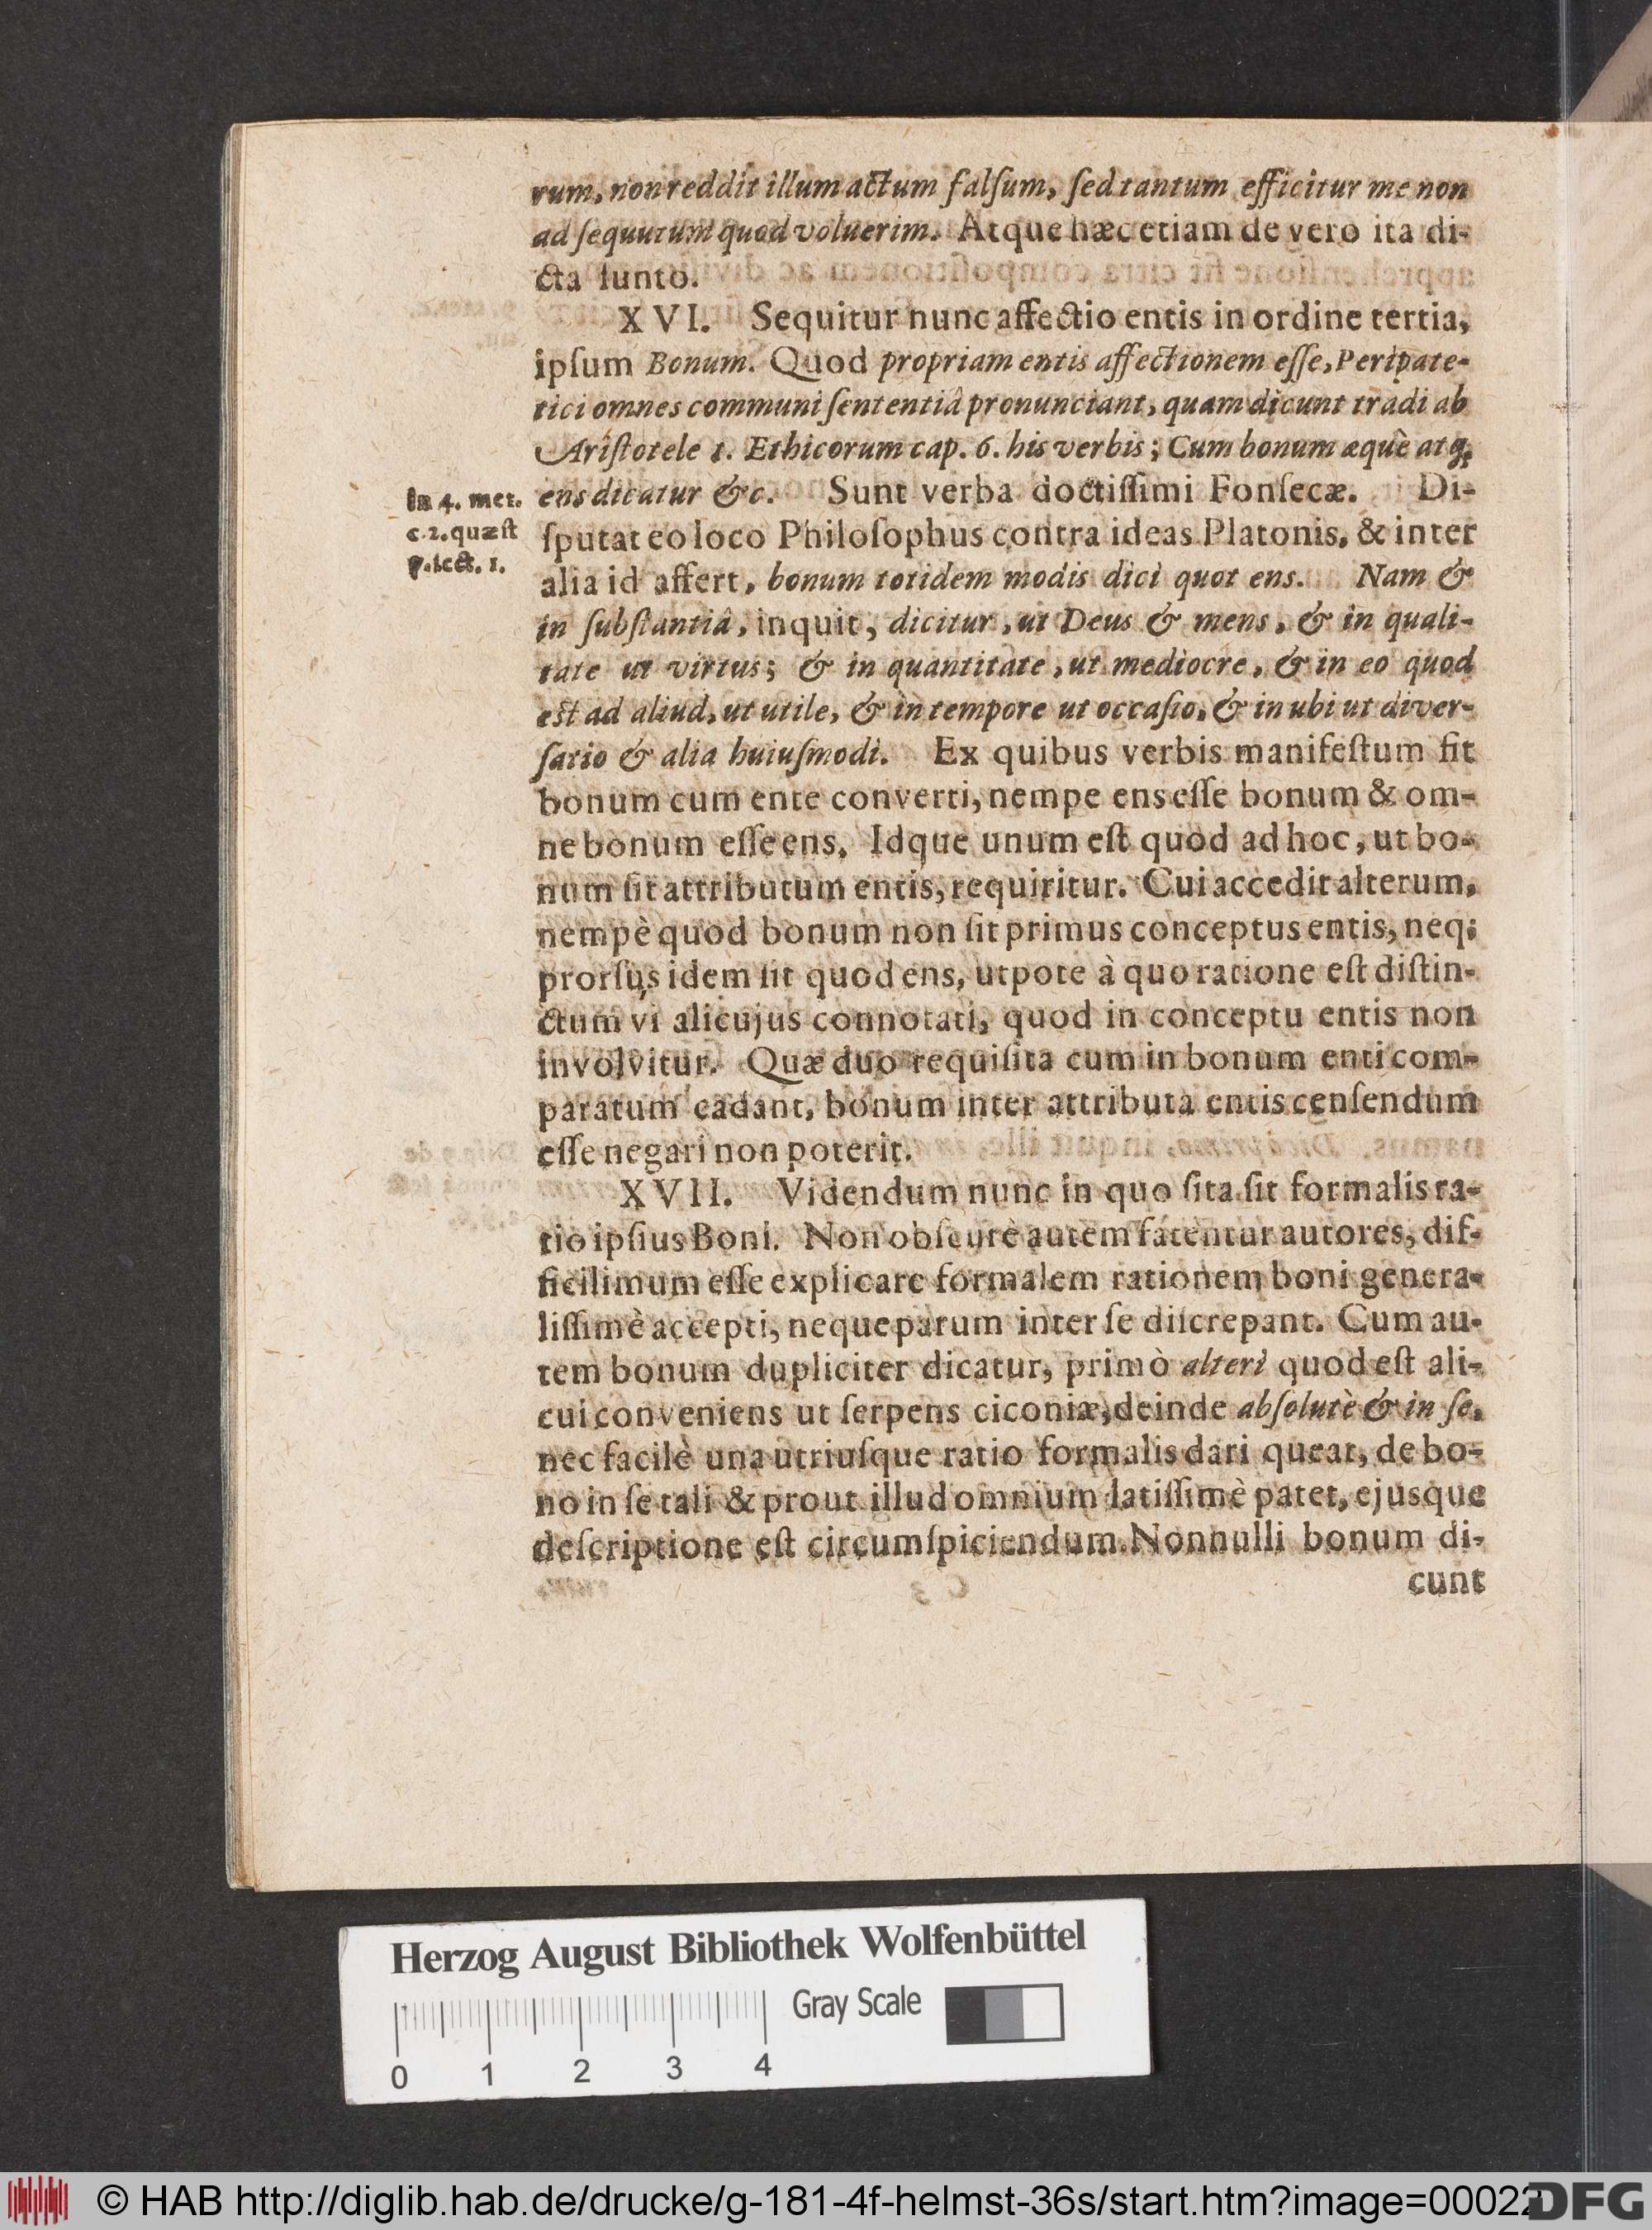 rum, non reddit illum actum falſum, ſed tantum efficitur me non
adſequutum quod voluerim. Atque hæc etiam de vero ita di-
cta ſunto.
XVI. Sequitur nunc affectio entis in ordine tertia,
ipſum Bonum. Quod propriam entis affectionem eſſe, Peripate-
tici omnes communi ſententiâ pronunciant, quam dicunt tradi ab
Ariſtotele 1. Ethicorum cap. 6. his verbis; Cum bonum æquè atq;
ens dicatur &c. Sunt verba doctiſſimi Fonſecæ. Di-
In 4. met.
c. 2. quæſt
7. ſect. 1.
ſputat eo loco Philoſophus contra ideas Platonis, & inter
alia id affert, bonum totidem modis dici quot ens. Nam &
in ſubſtantiâ, inquit, dicitur, ut Deus & mens, & in quali-
tate ut virtus; & in quantitate, ut mediocre, & in eo quod
eſt ad aliud, ut utile, & in tempore ut occaſio, & in ubi ut diver-
ſario & alia huiuſmodi. Ex quibus verbis manifeſtum fit
bonum cum ente converti, nempe ens eſſe bonum & om-
ne bonum eſſe ens. Idque unum eſt quod ad hoc, ut bo-
num ſit attributum entis, requiritur. Cui accedit alterum,
nempè quod bonum non ſit primus conceptus entis, neq;
prorſus idem ſit quod ens, utpote à quo ratione eſt diſtin-
ctum vi alicujus connotati, quod in conceptu entis non
involvitur. Quæ duo requiſita cum in bonum enti com-
paratum cadant, bonum inter attributa entis cenſendum
eſſe negari non poterit.
XVII. Videndum nunc in quo ſita ſit formalis ra-
tio ipſius Boni. Non obſcurè autem fatentur autores, dif-
ficilimum eſſe explicare formalem rationem boni genera-
liſſimè accepti, neque parum inter ſe diſcrepant. Cum au-
tem bonum dupliciter dicatur, primò alteri quod eſt ali-
cui conveniens ut ſerpens ciconiæ, deinde abſolutè & in ſe,
nec facilè una utriuſque ratio formalis dari queat, de bo-
no in ſe tali & prout illud omnium latiſſimè patet, ejusque
deſcriptione eſt circumſpiciendum. Nonnulli bonum di-
cunt
Herzog August Bibliothek Wolfenbüttel
Gray Scale
0 1 2 3 4
© HAB http://diglib.hab.de/drucke/g-181-4f-helmst-36s/start.htm?image=00022
DFG